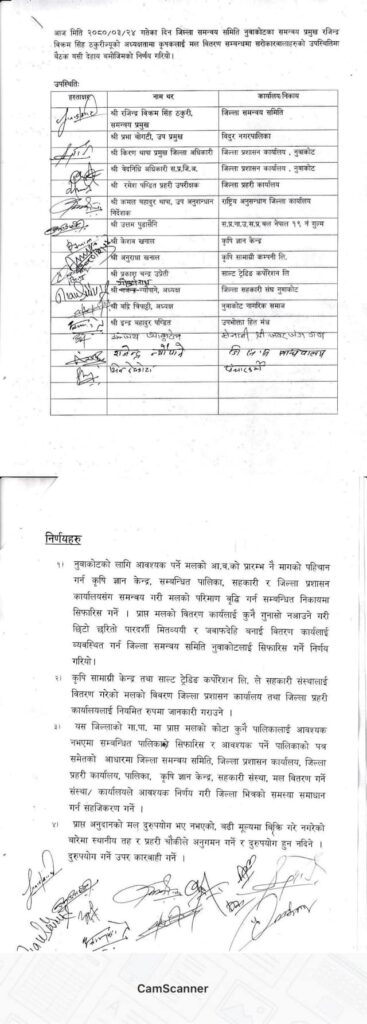 आज मिति २०८०/०३/२४ गतेका दिन जिल्ला समन्वय समिति नुवाकोटका समन्वय प्रमुख रजिन्द्र
विक्रम सिंह ठकुरीज्यूको अध्यक्षतामा कृषकलाई मल वितरण सम्बन्धमा सरोकारवालाहरुको उपस्थितिमा
बैठक बसी देहाय बमोजिमको निर्णय गरियो।
उपस्थितिः
हस्ताक्षर नाम थर कार्यालय/निकाय
श्री रजिन्द्र विक्रम सिंह ठकुरी, जिल्ला समन्वय समिति
समन्वय प्रमुख
श्री प्रभा बोगटी, उप प्रमुख विदुर नगरपालिका
श्री किरण थापा प्रमुख जिल्ला अधिकारी जिल्ला प्रशासन कार्यालय , नुवाकोट
श्री वेदनिधि अधिकारी स.प्र.जि.अ. जिल्ला प्रशासन कार्यालय , नुवाकोट
श्री रमेश पण्डित प्रहरी उपरीक्षक जिल्ला प्रहरी कार्यालय
श्री कमल बहादुर थापा, उप अनुसन्धान राष्ट्रिय अनुसन्धान जिल्ला कार्यालय
निर्देशक
श्री उत्तम पुडासैनि स.प्र.ना.उ.स.प्र.बल नेपाल १९ नं गुल्म
श्री केशब खनाल कृषि ज्ञान केन्द्र
श्री अनुराधा खनाल कृषि सामाग्री कम्पनी लि.
श्री प्रकाश चन्द्र उप्रेती साल्ट ट्रेडिङ कर्पोरेशन लि
श्री न्यौपाने, अध्यक्ष जिल्ला सहकारी संघ नुवाकोट
श्री बद्रि त्रिपाठी, अध्यक्ष नुवाकोट नागरिक समाज
श्री इन्द्र बहादुर पण्डित उपभोक्ता हित मंच
निर्णयहरु
१) नुवाकोटको लागि आवश्यक पर्ने मलको आ.व.को प्रारम्भ नै मागको पहिचान
गर्न कृषि ज्ञान केन्द्र, सम्बन्धित पालिका, सहकारी र जिल्ला प्रशासन
कार्यालयसंग समन्वय गरी मलको परिमाण बृद्धि गर्न सम्बन्धित निकायमा
सिफारिस गर्ने । प्राप्त मलको वितरण कार्यलाई कुनै गुनासो नआउने गरी
छिटो छरितो पारदर्शी मितव्ययी र जवाफदेहि बनाई वितरण कार्यलाई
व्यवस्थित गर्न जिल्ला समन्वय समिति नुवाकोटलाई सिफारिस गर्ने निर्णय
गरियो।
२) कृषि सामाग्री केन्द्र तथा साल्ट ट्रेडिङ कर्पोरेशन लि. ले सहकारी संस्थालाई
वितरण गरेको मलको विवरण जिल्ला प्रशासन कार्यालय तथा जिल्ला प्रहरी
कार्यालयलाई नियमित रुपमा जानकारी गराउने ।
३) यस जिल्लाको गा.पा. मा प्राप्त मलको कोटा कुनै पालिकालाई आवश्यक
नभएमा सम्बन्धित पालिकाको सिफारिस र आवश्यक पर्ने पालिकाको पत्र
समेतको आधारमा जिल्ला समन्वय समिति, जिल्ला प्रशासन कार्यालय, जिल्ला
प्रहरी कार्यालय, पालिका, कृषि ज्ञान केन्द्र, सहकारी संस्था, मल वितरण गर्ने
संस्था/ कार्यालयले आवश्यक निर्णय गरी जिल्ला भित्रको समस्या समाधान
गर्न सहजिकरण गर्ने ।
४) प्राप्त अनुदानको मल दुरुपयोग भए नभएको, बढी मूल्यमा बिक्रि गरे नगरेको
बारेमा स्थानीय तह र प्रहरी चौकीले अनुगमन गर्ने र दुरुपयोग हुन नदिने ।
दुरुपयोग गर्ने उपर कारबाही गर्ने ।
CamScanner